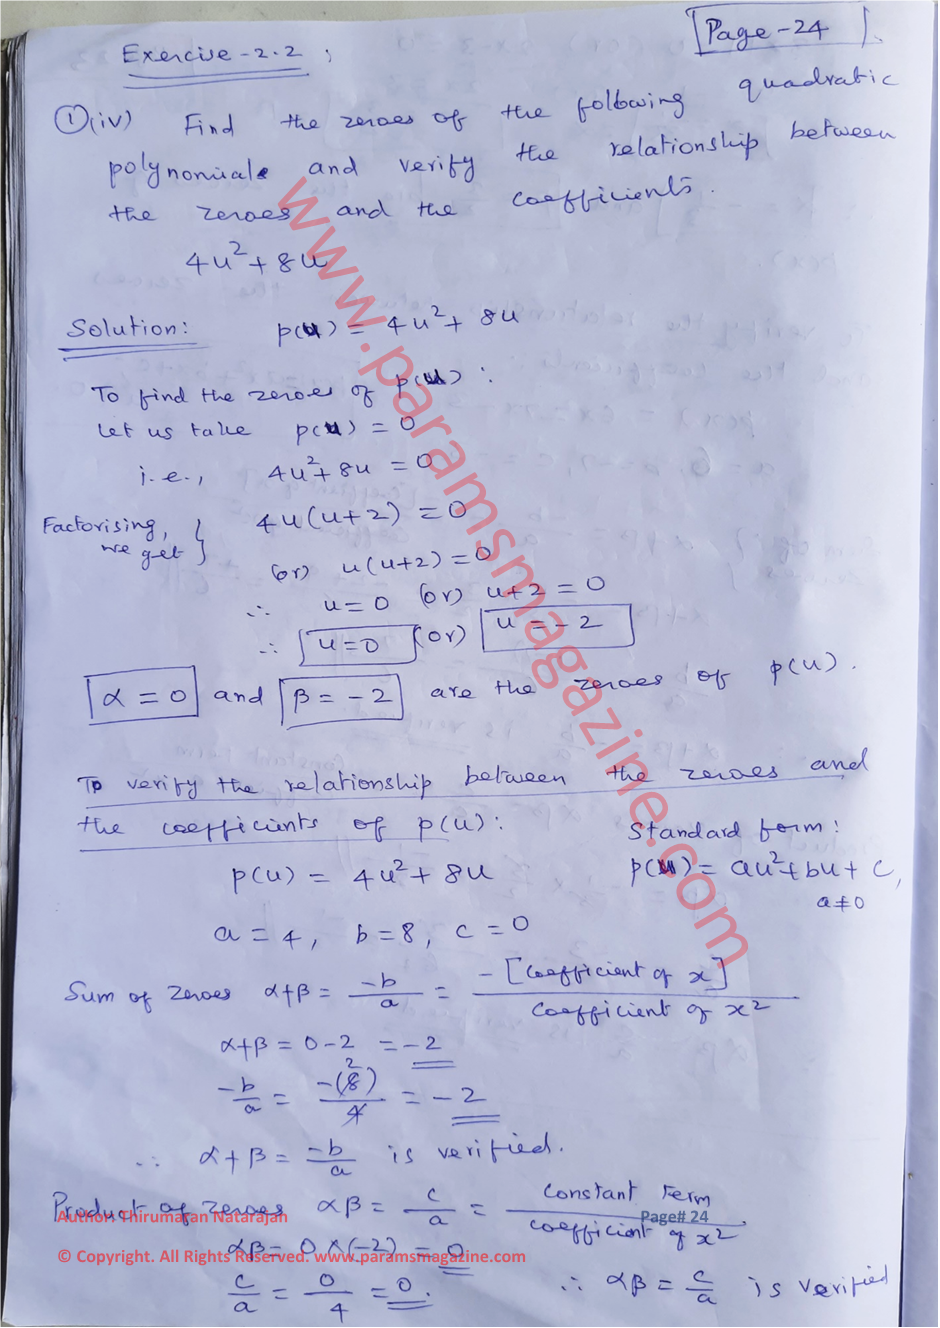 Page-24
Exercise-2.2 ;
①(iv) Find the zeroes of the following quadratic
polynomials and verify the relationship between
the zeroes and the coefficients.
4u²+8u
Solution: p(u) = 4u²+ 8u
To find the zeroes of p(u) :
Let us take p(u) = 0
i.e., 4u²+8u = 0
Factorising, we get } 4u(u+2) = 0
(or) u(u+2) = 0
∴ u=0 (or) u+2 = 0
∴ u=0 (or) u = -2
α = 0 and β = -2 are the zeroes of p(u).
To verify the relationship between the zeroes and
the coefficients of p(u):
Standard form:
p(u) = 4u²+ 8u p(u) = au²+bu+c,
a≠0
a = 4, b=8, c=0
Sum of zeroes α+β = -b/a = -[Coefficient of x]/Coefficient of x²
α+β = 0-2 = -2
-b/a = -(8)/4 = -2
2
∴ α+β = -b/a is verified.
Product of zeroes αβ = c/a = Constant term/coefficient of x²
αβ = 0×(-2) = 0
c/a = 0/4 = 0. ∴ αβ = c/a is verified
www.paramsmagazine.com
Author: Thirumaran Natarajan Page# 24
© Copyright. All Rights Reserved. www.paramsmagazine.com